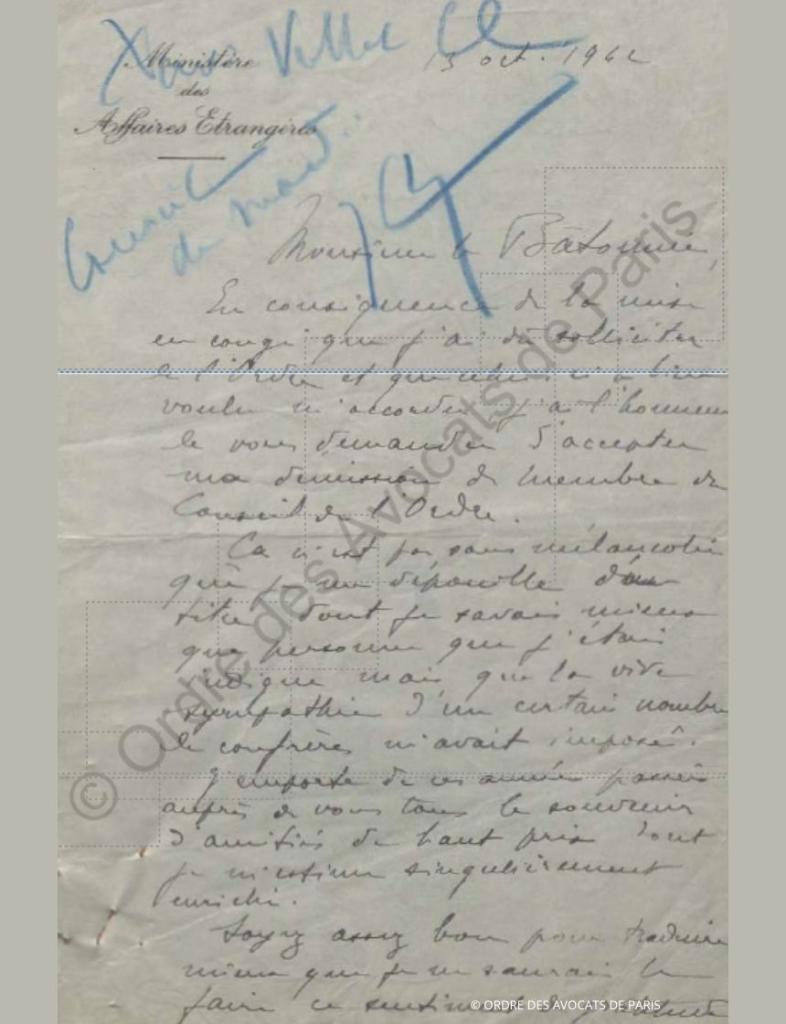 Ministère
des
Affaires Etrangères
13 oct. 1962
Conseil
de mardi
Monsieur le Bâtonnier,
En conséquence de la mise
en congé que j'ai dû solliciter
de l'Ordre et que celui-ci a bien
voulu m'accorder j'ai l'honneur
de vous demander d'accepter
ma démission de membre du
Conseil de l'Ordre.
Ça n'est pas sans mélancolie
que je me dépouille d'un
titre dont je savais mieux
que personne que j'étais
indigne mais que la vive
sympathie d'un certain nombre
de confrères m'avait imposé.
J'emporte de ces années passées
auprès de vous tous le souvenir
d'amitiés de haut prix dont
je m'estime singulièrement
enrichi.
Soyez assez bon pour traduire
mieux que je ne saurais le
faire ce sentiment de
© Ordre des Avocats de Paris
© ORDRE DES AVOCATS DE PARIS